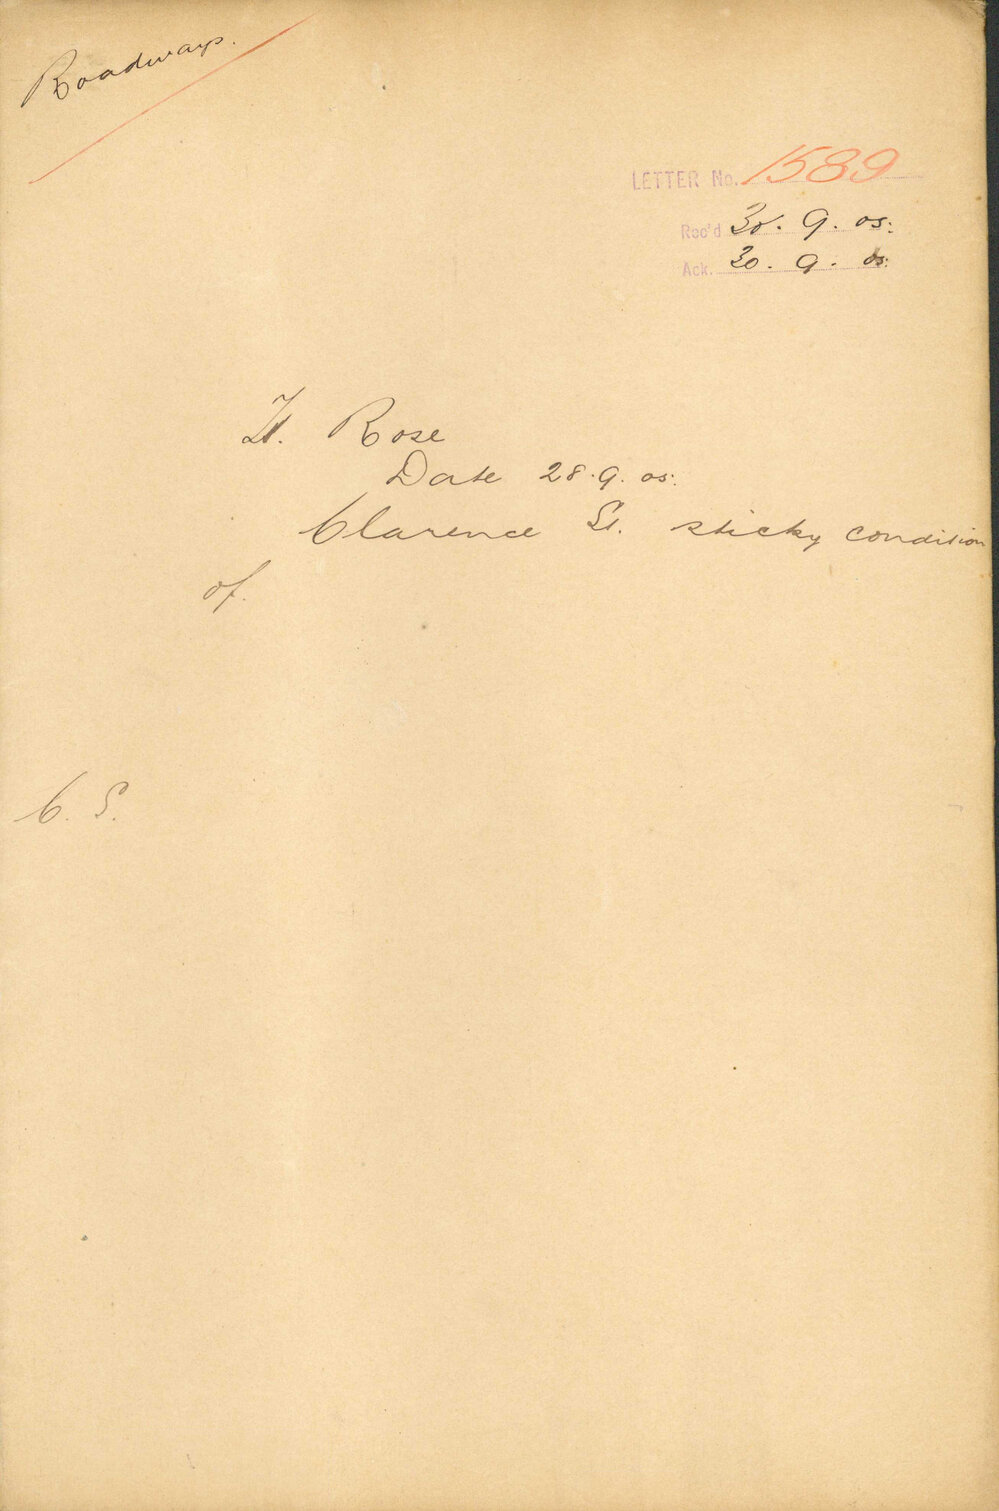 Roadways.
LETTER No. 1589
Rec'd 30. 9. 05.
Ack. 30. 9. 05.
Rose
Date 28.9.05.
Clarence St. sticky condition
of.
C. S.